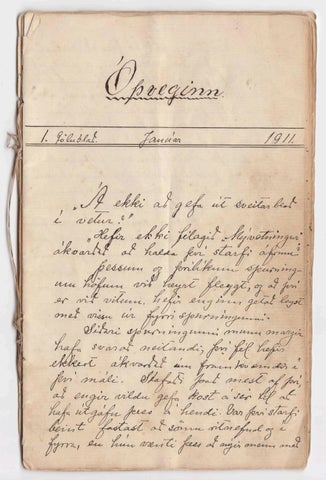 Óþveginn
1. Tölublað. Janúar 1911.
„Á ekki að gefa út sveitarblað
í vetur?"
"Hefir ekki félagið
ákvarðað að halda því starfi áfram"
Þessum og þvílíkum spurning-
um höfum við heyrt fleygt, og að því
er við vitum, hefir enginn getað leyst
með vissu úr fyrri spurningunni.
Síðari spurningunni munu margir
hafa svarað neitandi, því fél. hefir
ekkert ákvarðað um framkvæmdir í
því máli. Stafaði það mest af því,
að engir vildu gefa kost á sér til að
hafa útgáfu þess á hendi. Var því starfi
beint fastast að sömu ritnefnd og í
fyrra, en hún værti þess að aðrir menn með